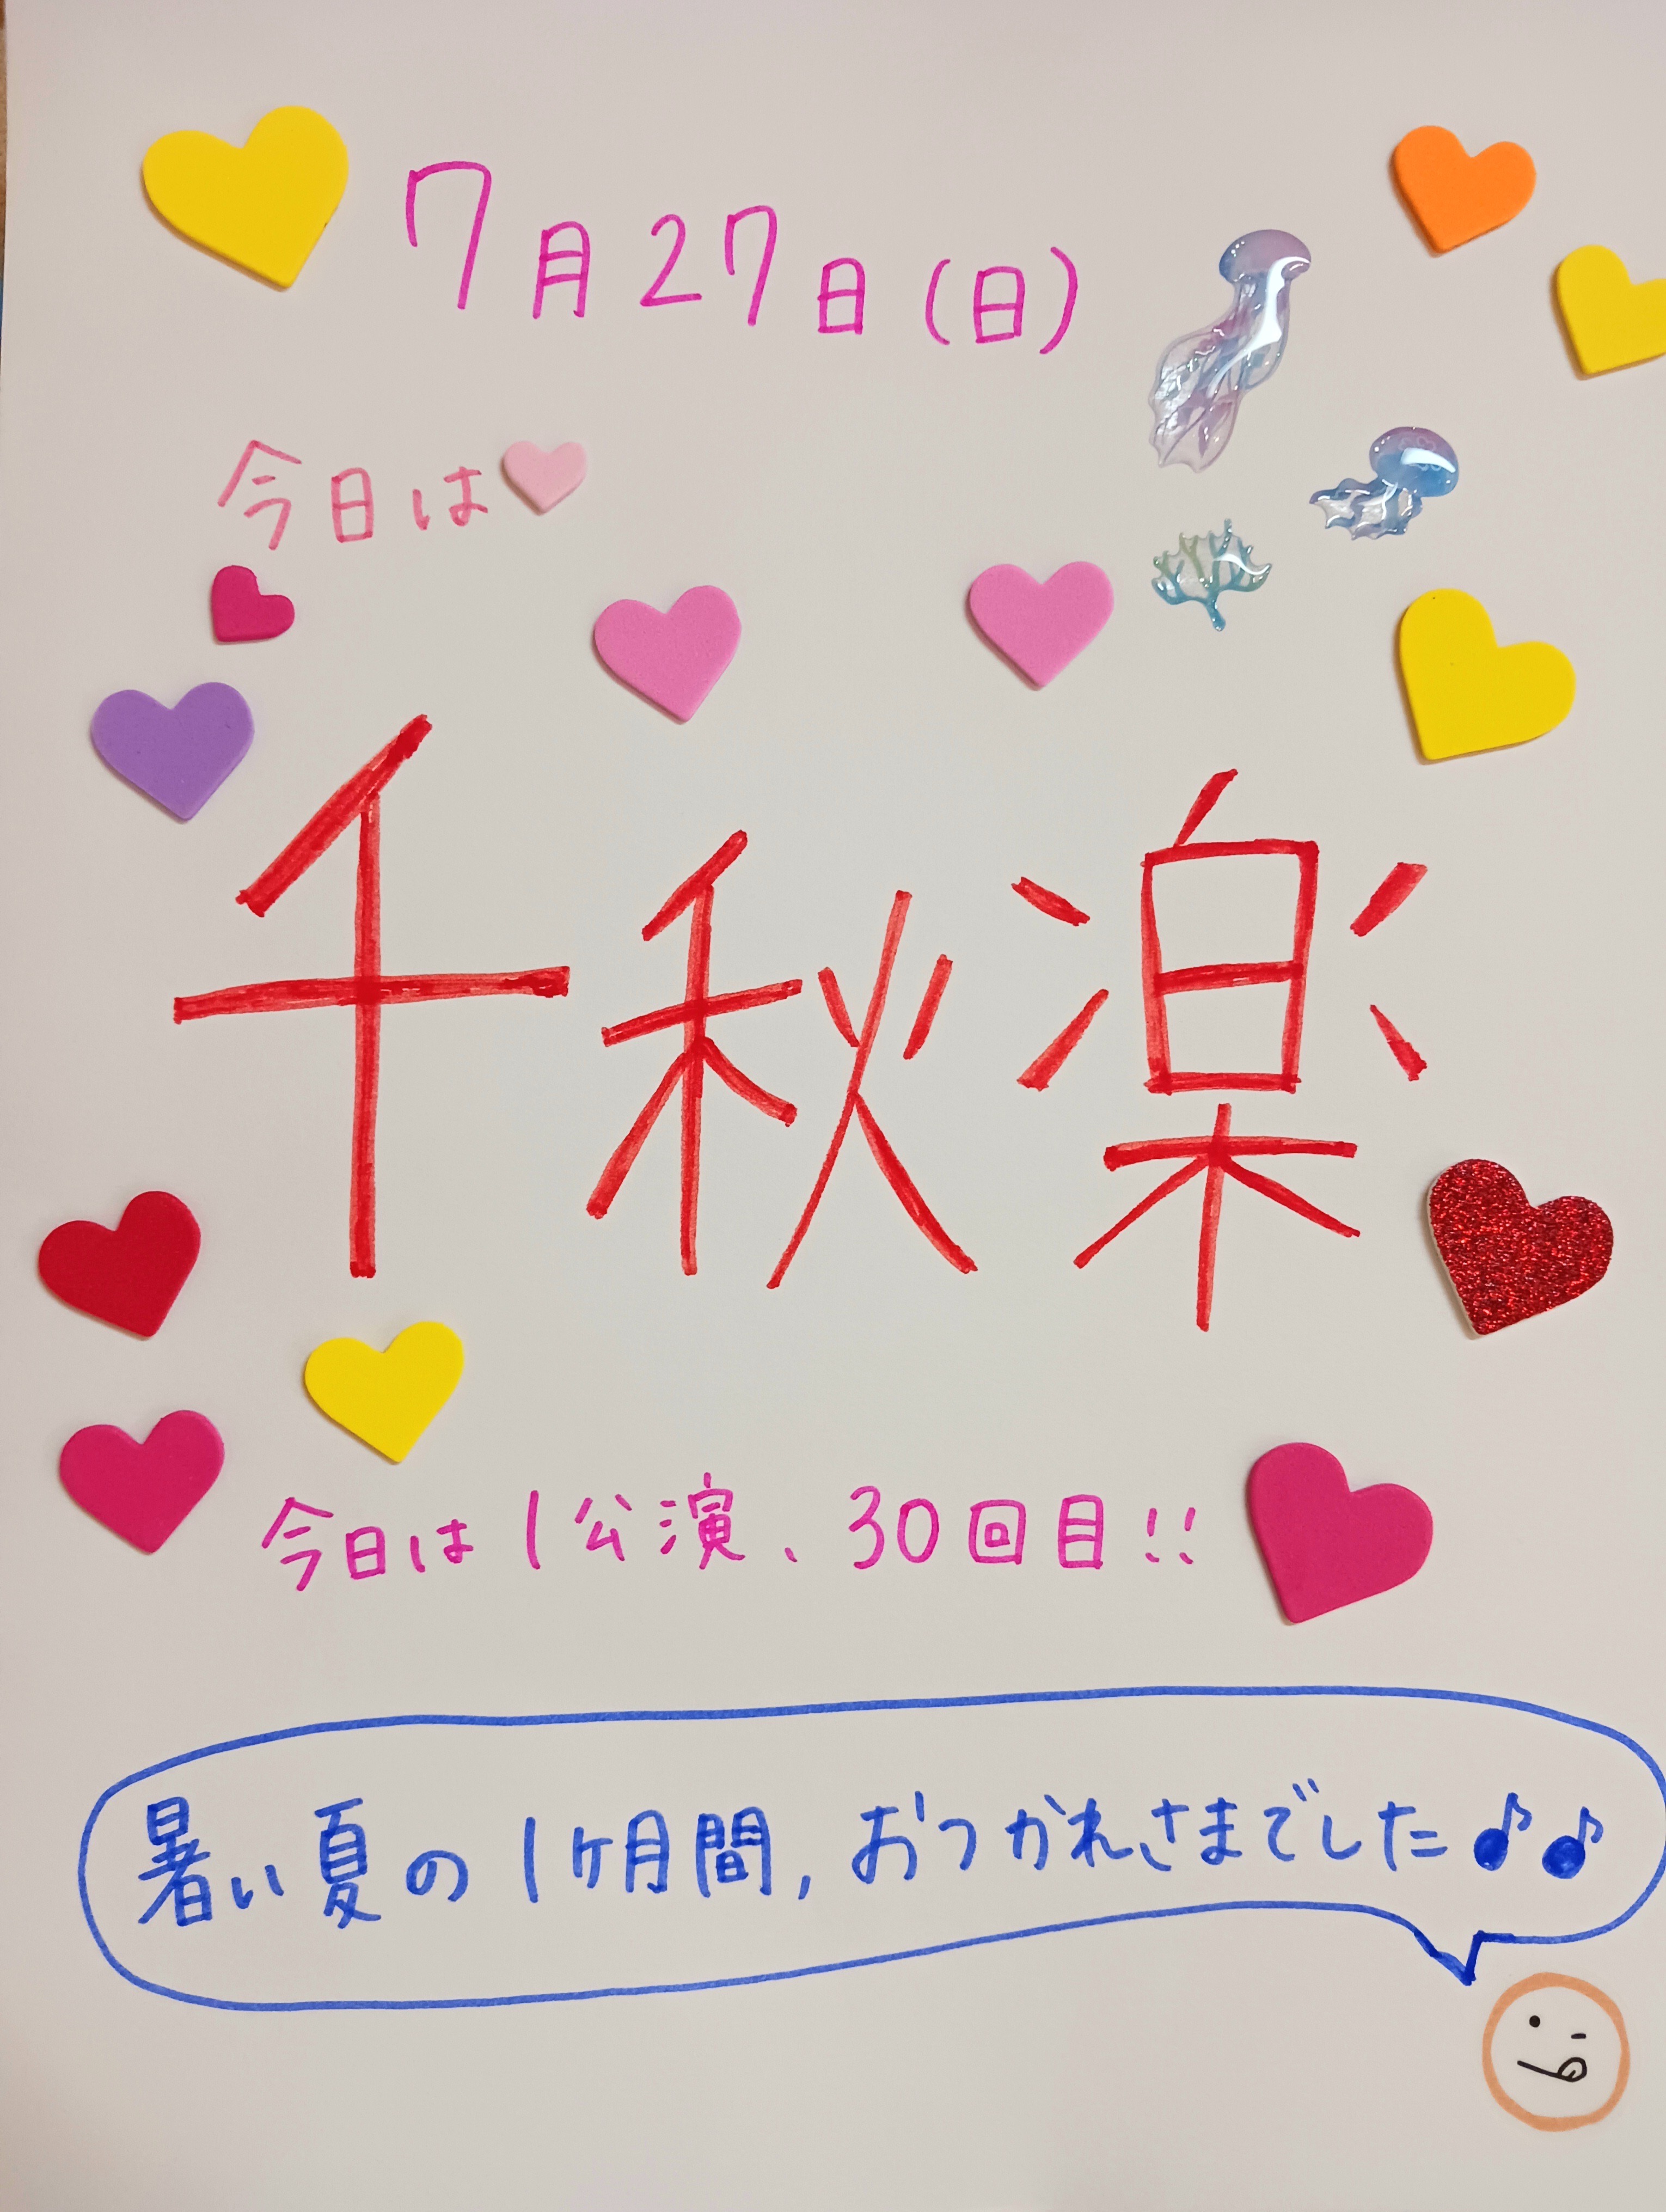 7月27日(日)
今日は
千秋楽
今日は1公演、30回目!!
暑い夏の1ヶ月間,おつかれさまでした♪♪